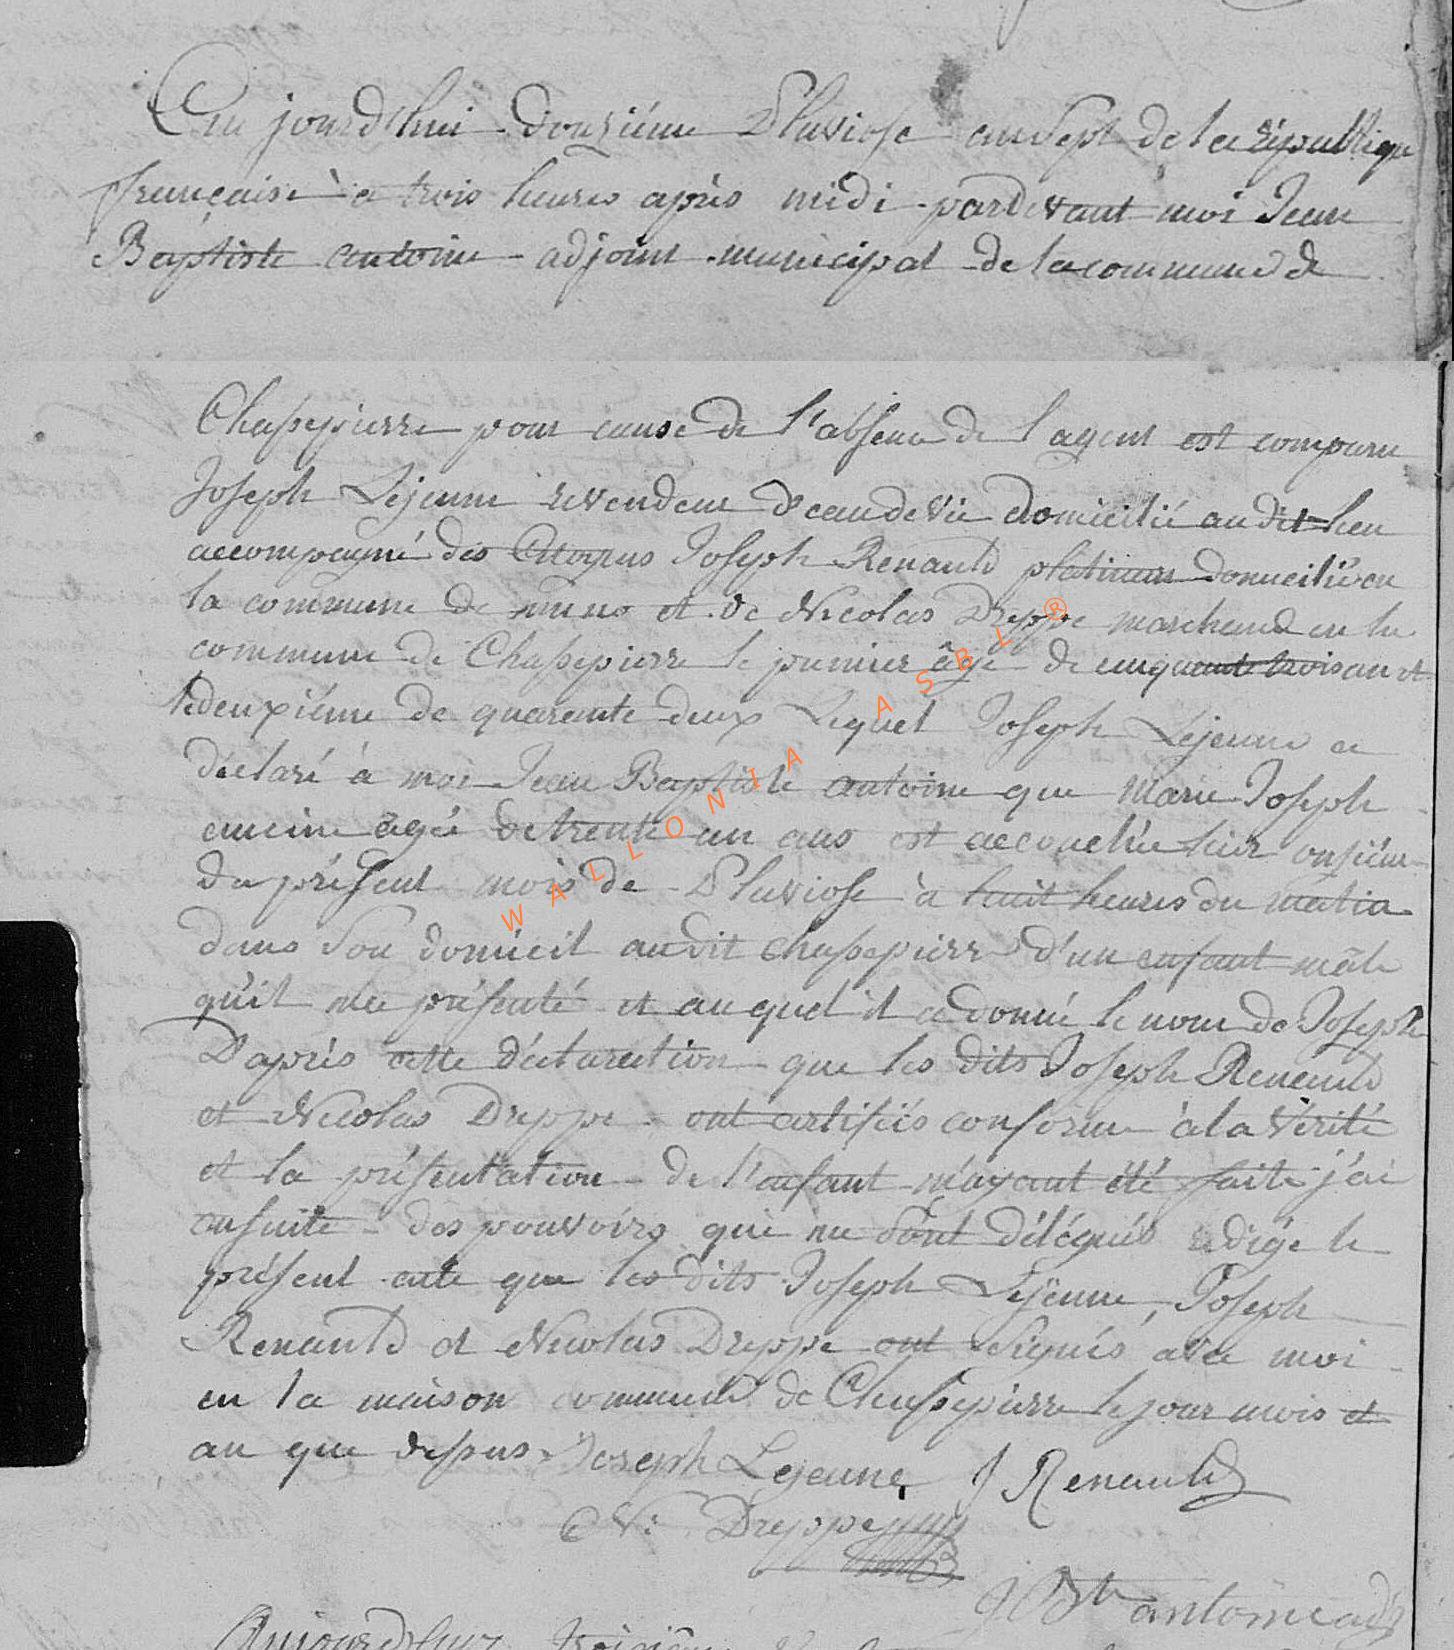 Au jourd'hui douziéme Pluviose an sept de la république
française à trois heures après midi pardevant moi Jean
Baptiste antoine adjoint municipal de la commune de
Chassepierre pour cause de l'absence de l'agent est comparu
Joseph Lejeune revendeur d'eau de vie domicilié au dit lieu
accompagné des Citoyens Joseph Renauld platineur domicilié en
la commune de muno et de Nicolas Dreppe marchand en la
commune de Chassepierre le premier âgé de cinquante trois an et
le deuxiéme de quarante deux Lequel Joseph Lejeune a
déclaré à moi Jean Baptiste antoine que Marie Joseph
âgée de trente un ans est accouchée hier onsiéme
du présent mois de Pluviose à huit heures du matin
dans son domicil audit chassepierre d'un enfant mâle
qu'il ma présenté et au quel il a donné le nom de Joseph
D'après cette déclaration que les dits Joseph Renauld
et Nicolas Dreppe ont certifiés conforme à la vérité
et la présentation de l'enfant m'ayant été faite j'ai
ensuite des pouvoirs qui me sont délégués rédigé le
présent acte que les dits Joseph Lejeune, Joseph
Renauld et Nicolas Dreppe ont signés avec moi
en la maison commune de Chassepierre le jour mois et
an que dessus Joseph Lejeune J Renauld
N: Dreppe
J Bte antoine adj
Aujourd'huy troisième
WALLONIA ASBL ®